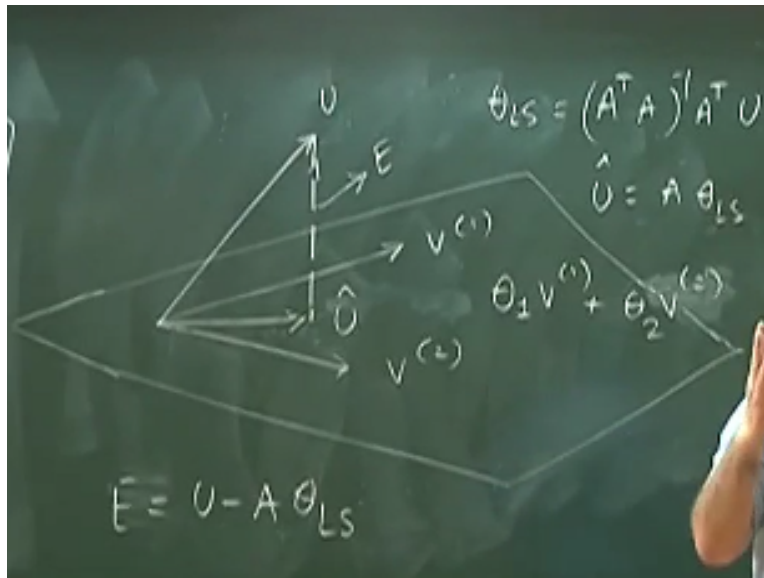 U
θ_LS = (AᵀA)⁻¹Aᵀ U
E
Û = A θ_LS
v⁽¹⁾
θ₁ v⁽¹⁾ + θ₂ v⁽²⁾
Û
v⁽²⁾
E = U - A θ_LS